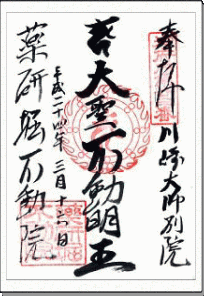 奉拝 川崎大師別院
大聖不動明王
平成二十四年 三月 十六日
薬研堀不動院